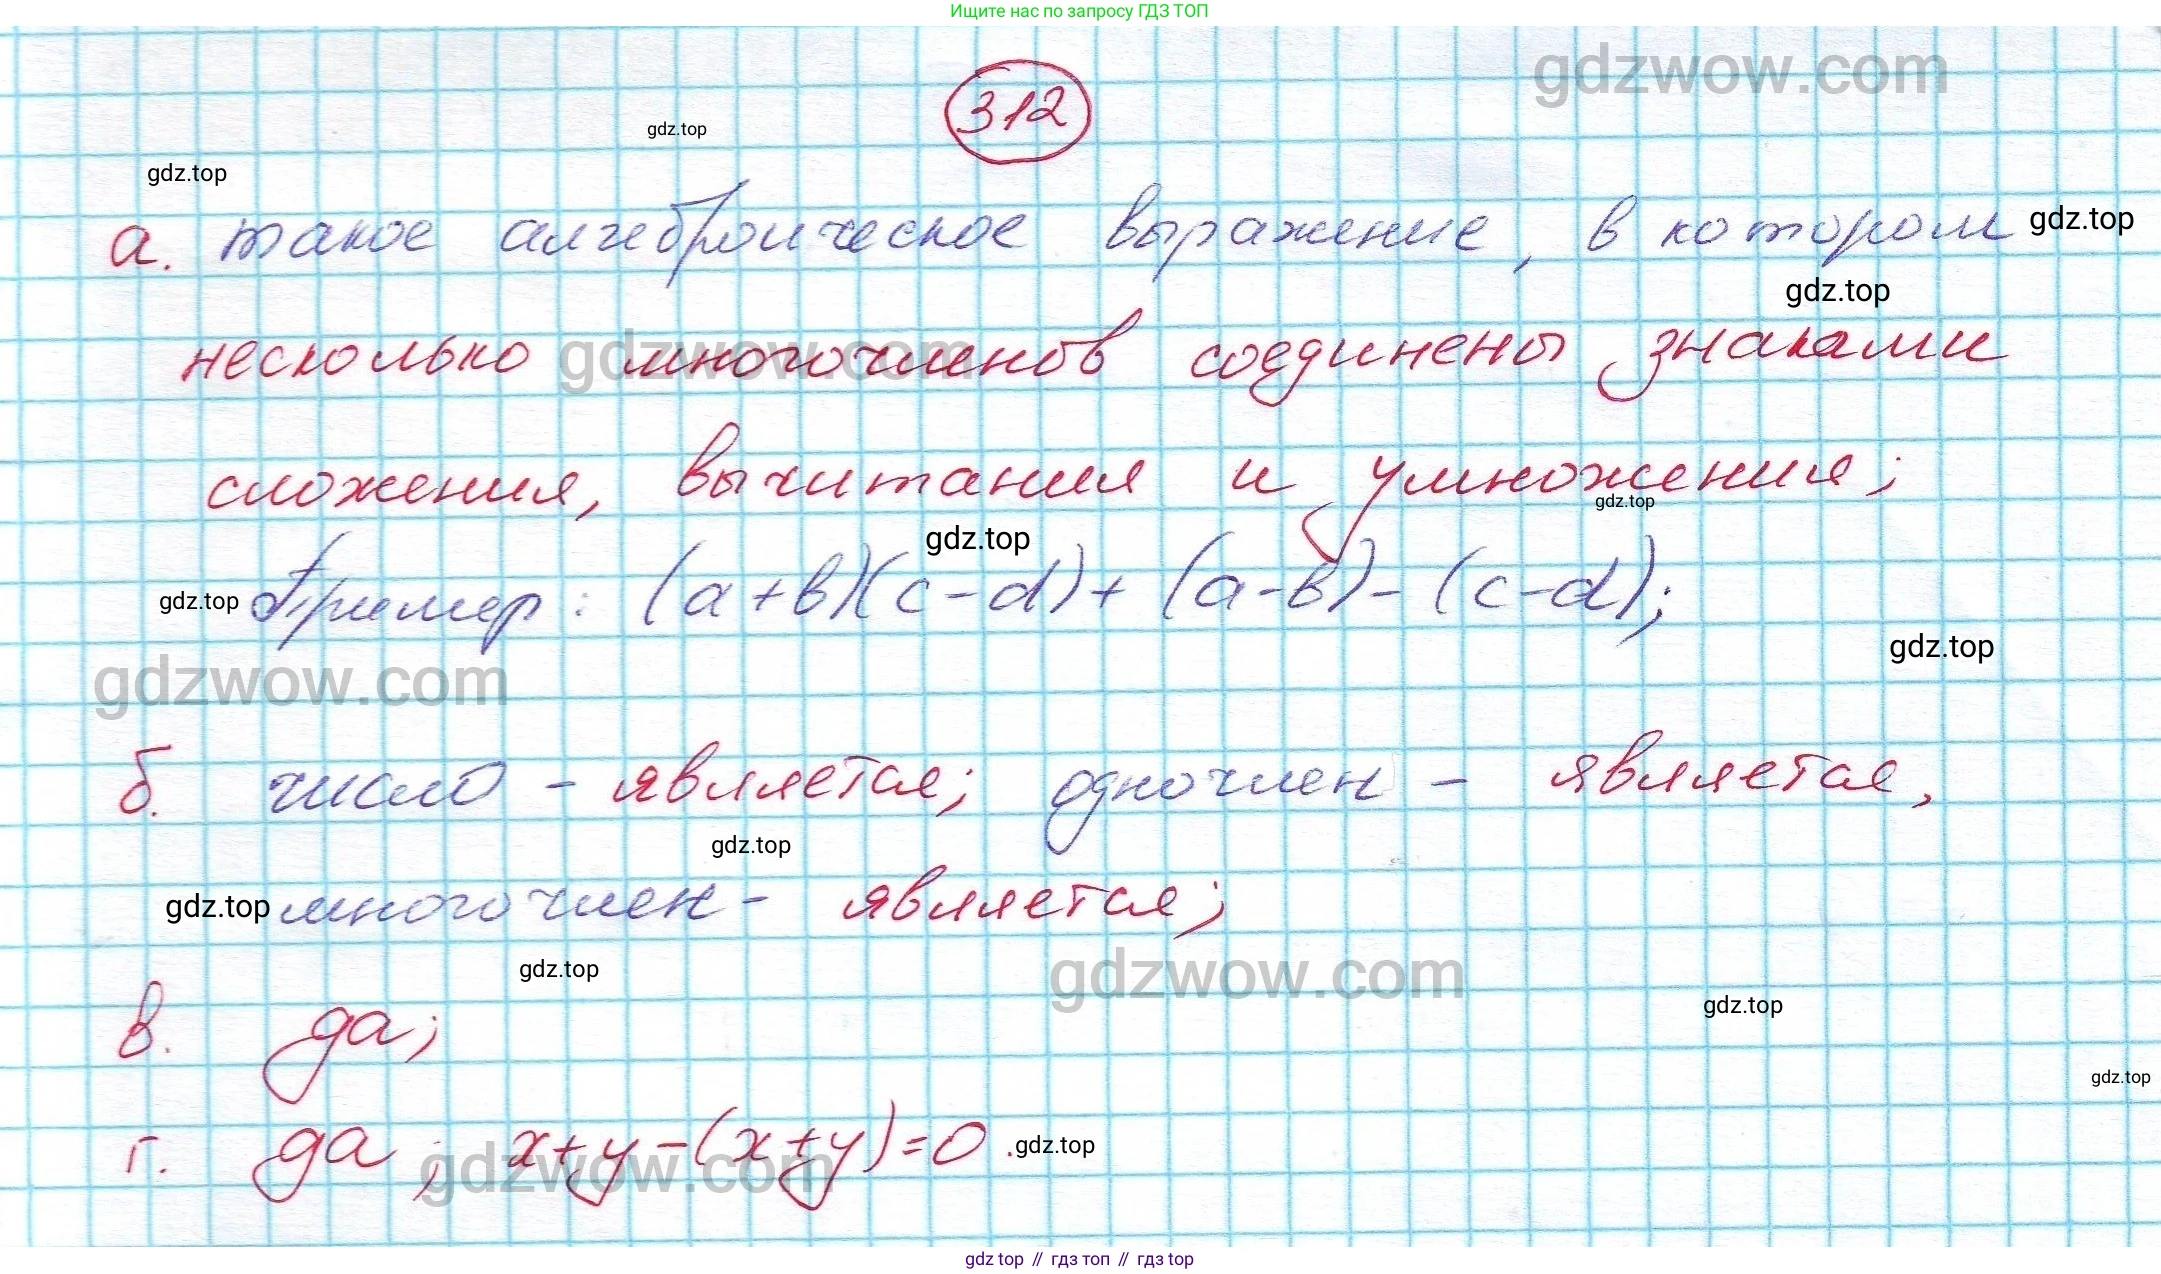 Ищите нас по запросу ГДЗ ТОП
gdzwow.com
312
gdz.top
gdz.top
а. такое алгебраическое выражение, в котором gdz.top
gdz.top
несколько многочленов соединены знаками
gdzwow.com
сложения, вычитания и умножения;
gdz.top
gdz.top
gdz.top Пример: (a+b)(c-d)+(a-b)-(c-d);
gdz.top
gdzwow.com
б. число - является; одночлен - является,
gdz.top
gdz.top многочлен - является;
gdz.top
gdzwow.com
gdz.top
в. да;
gdz.top
г. да; x+y-(x+y)=0. gdz.top
gdzwow.com
gdz top // гдз топ // гдз top